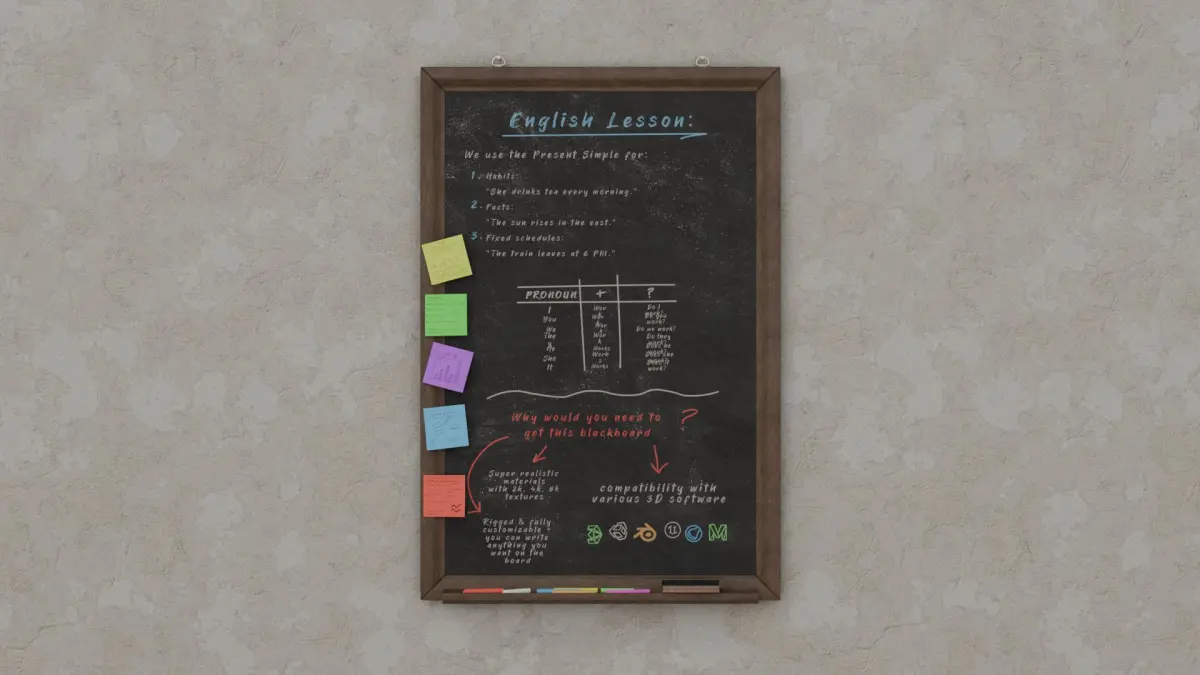 English Lesson:
We use the Present Simple for:
1. Habits:
"She drinks tea every morning."
2. Facts:
"The sun rises in the east."
3. Fixed schedules:
"The train leaves at 6 PM."
PRONOUN + ?
I Wor Do I
You
work?
We Do we work?
The Wor Do they
k
He Works
She Work
s
It Works
work?
Why would you need to ?
get this blackboard
Super realistic
materials
with 2k, 4k, 8k
textures
compatibility with
various 3D software
Rigged & fully
customizable -
you can write
anything you
want on the
board